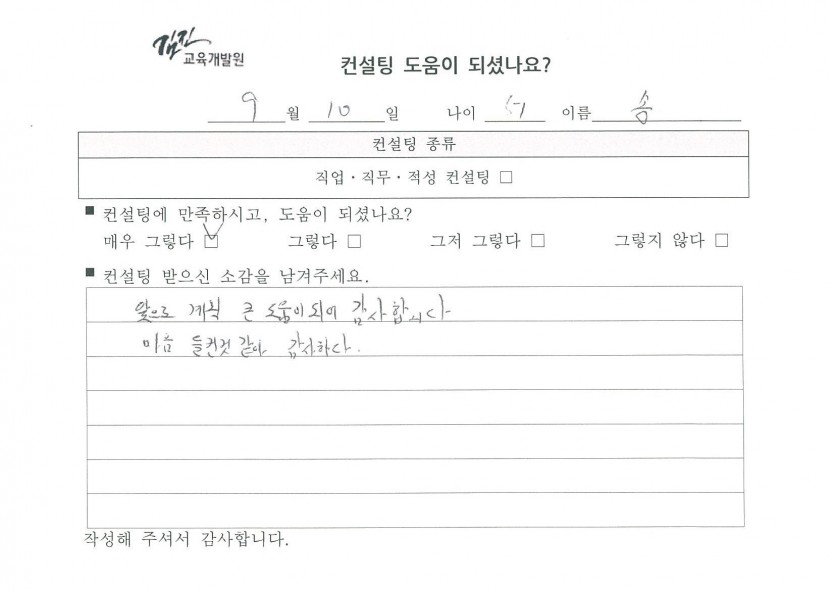 김진
교육개발원
컨설팅 도움이 되셨나요?
9 월 10 일 나이 이름 송
컨설팅 종류
직업·직무·적성 컨설팅 □
■ 컨설팅에 만족하시고, 도움이 되셨나요?
매우 그렇다 ☑ 그렇다 □ 그저 그렇다 □ 그렇지 않다 □
■ 컨설팅 받으신 소감을 남겨주세요.
앞으로 계획 큰 도움이되어 감사합니다
마음 들킨것 같아 감사하다.
작성해 주셔서 감사합니다.